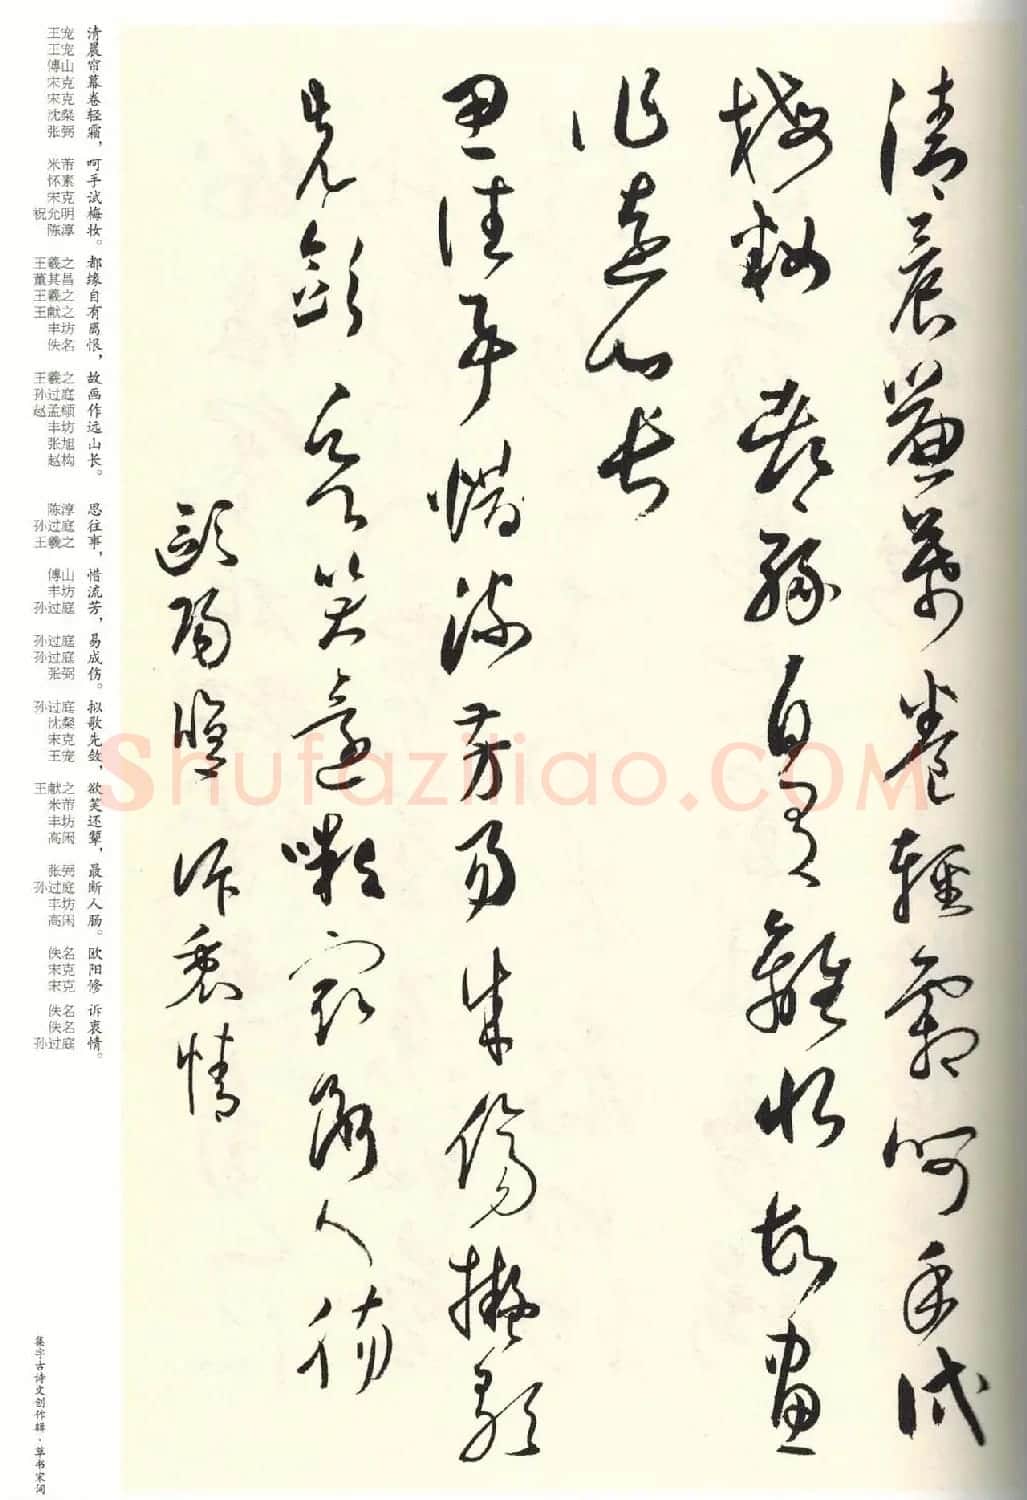 清晨簾幕卷輕霜呵手試
梅妝都緣自有離恨故畫
作遠山長
思往事惜流芳易成傷擬歌
先斂欲笑還嚬最斷人腸
歐陽修 訴衷情
清晨帘幕卷轻霜，呵手试梅妆。都缘自有离恨，故画作远山长。思往事，惜流芳，易成伤。拟歌先敛，欲笑还颦，最断人肠。欧阳修 诉衷情。
王宠 王宠 傅山 宋克 宋克 沈粲 张弼 米芾 怀素 宋克 祝允明 陈淳 王羲之 董其昌 王羲之 王献之 丰坊 佚名 王羲之 孙过庭 赵孟頫 丰坊 张旭 赵构 陈淳 孙过庭 王羲之 傅山 丰坊 孙过庭 孙过庭 孙过庭 张弼 孙过庭 沈粲 宋克 王宠 王献之 米芾 丰坊 高闲 张弼 孙过庭 丰坊 高闲 佚名 宋克 宋克 佚名 佚名 孙过庭
集字古诗文创作辑·草书宋词
Shufaziliao.COM